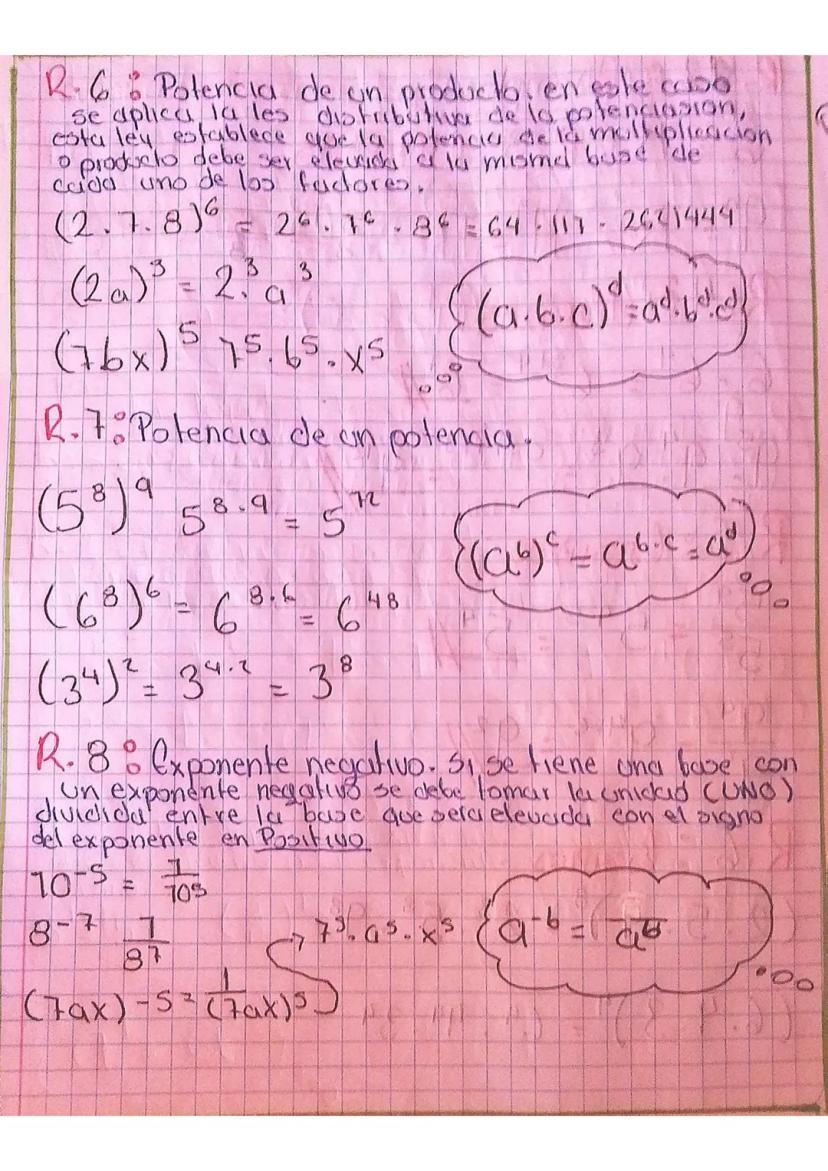 R.6: Potencia de un producto. en este caso
se aplica la les distributiva de la potenciasion,
esta ley establece que la potencia de la multiplicacion
o producto debe ser elevada a la misma base de
cada uno de los factores.
(2.7.8)⁶ = 2⁶.7⁶.8⁶ = 64
(2a)³ = 2³.a³
(a.b.c)ᵈ=aᵈ.bᵈ.cᵈ
(7bx)⁵ 7⁵.b⁵.x⁵
R.7: Potencia de un potencia.
(5⁸)⁹ 5⁸·⁹ = 5⁷²
((aᵇ)ᶜ = aᵇ·ᶜ = aᵈ)
(6⁸)⁶ = 6⁸·⁶ = 6⁴⁸
(3⁴)² = 3⁴·² = 3⁸
R.8: Exponente negativo. Si se tiene una base con
un exponente negativo se debe tomar la unidad (UNO)
dividida entre la base que sera elevada con el signo
del exponente en Positivo
10⁻⁵ = 1/10⁵
8⁻⁷ 1/8⁷
7⁵.a⁵.x⁵
a⁻ᵇ = 1/aᵇ
(7ax)-5 = 1/(7ax)⁵